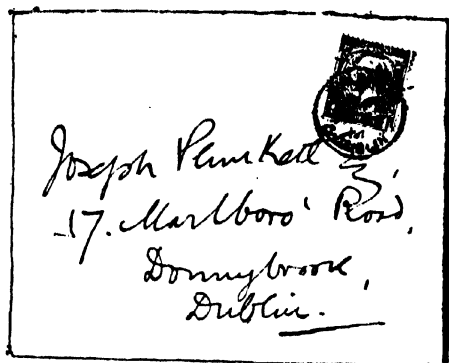 Joseph Plunkett
17. Marlboro' Road,
Donnybrook,
Dublin.